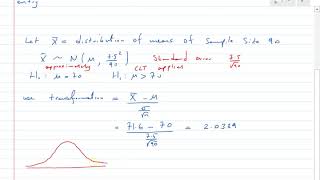 Let X̄ = distribution of means of sample size 90
X̄ ~ N(μ, 7.5²/90) Standard error 7.5/√90
approximately CLT applies
H₀: μ = 70 H₁: μ > 70
use transformation = X̄ - μ / σ/√n
= 71.6 - 70 / 7.5/√90 =